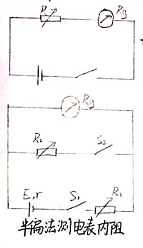 R
Rg
Rg
R2
S2
E,r
S1
R1
半偏法测电表内阻